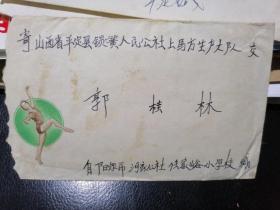 寄山西省平定县锁簧人民公社上马方生产大队 交
郭 桂 林
自阳泉市河底公社 小学校